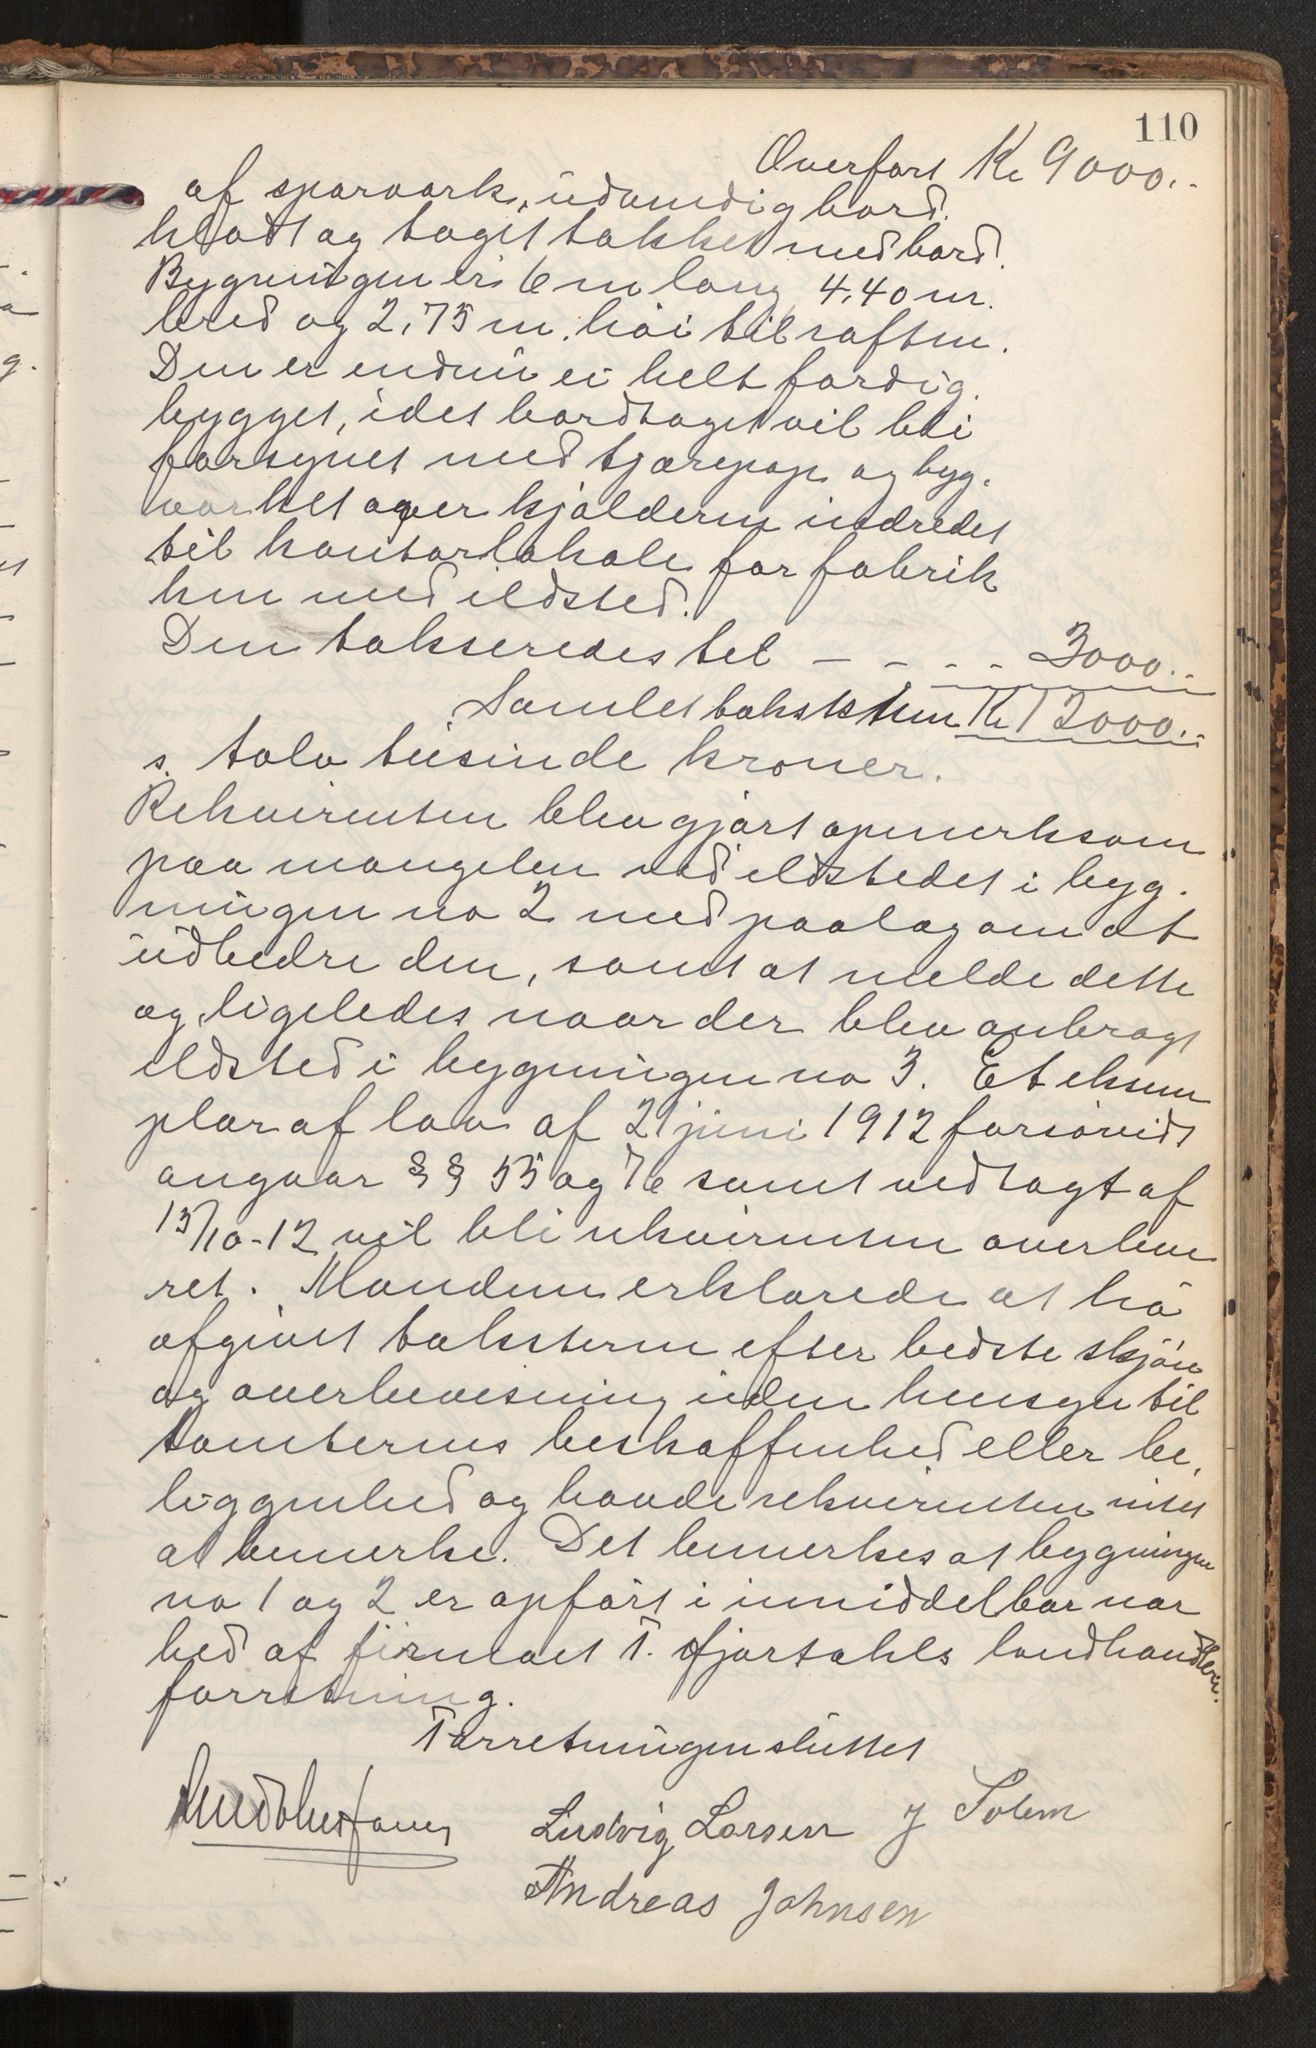 110
Overført Kr 9000..
af sparværk, udvendig bord.
klædt og taget tækket med bord.
Bygningen er 6 m lang 4,40 m.
bred og 2,75 m. høi til raften.
Den er endnu ei helt færdig.
bygget, idet bordtaget vil bli
forsynet med tjærepap og byg.
værket over kjælderen indredet
til kontorlokale for fabrik
ken med ildsted.
Den takseredes til - - - - 3000..
Samlet takstsum Kr 12000..
s. tolv tusinde kroner.
Rekvirenten blev gjort opmerksom
paa mangelen ved ildstedet i byg.
ningen no 2 med paalæg om at
udbedre den, samt at melde dette
og ligeledes naar der blev anbragt
ildsted i bygningen no 3. Et eksem
plar af lov af 21 juni 1912 forsåvidt
angaar §§ 55 og 76 samt vedtagt af
15/10-12 vil bli rekvirenten overleve
ret. Mændene erklærede at ha
afgivet taksterne efter bedste skjøn
og overbevisning uden hensyn til
tomternes beskaffenhed eller be.
liggenhed og havde rekvirenten intet
at bemerke. Det bemerkes at bygningen
no 1 og 2 er opført i umiddelbar nær
hed af firmaet T. Fjørtofts landhandler.
forretning.
Forretningen sluttet
Ludvig Larsen J Solem
Andreas Johnsen